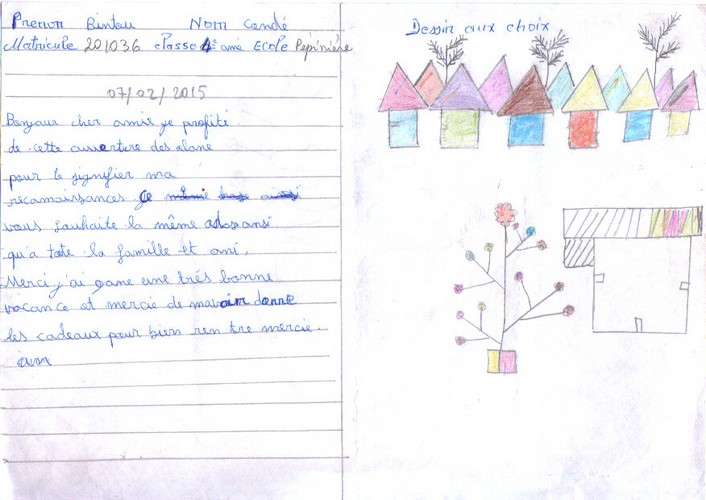 Prenom Bintou Nom Condé
Matricule 201036 classe 4e anné Ecole Pépinière
07/02/2015
Bonjour cher amis je profite
de cette ouverture des
pour te signifier ma
reconnaissances Je
vous souhaite la même
qu'a toute la famille et ami.
Merci j'ai passe une trés bonne
vacance et mercie de mavoir donne
les cadeaux pour bien ren tre mercie.
Dessin aux choix